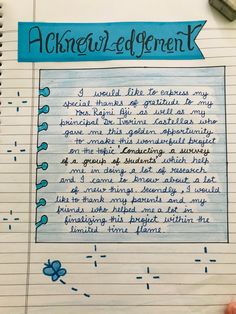 Acknowledgement
I would like to express my
special thanks of gratitude to my
Mrs Rajni Aji as well as my
principal Dr Ivorine Castellas who
gave me this golden opportunity
to make this wonderful project
on the topic 'Conducting a survey
of a group of students' which help
me in doing a lot of research
and I came to know about a lot
of new things. Secondly, I would
like to thank my parents and my
friends who helped me a lot in
finalizing this project within the
limited time flame.